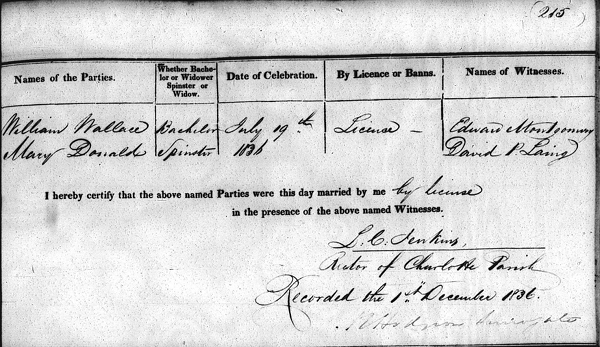 (215)
Names of the Parties. Whether Bachelor or Widower Spinster or Widow. Date of Celebration. By Licence or Banns. Names of Witnesses.
William Wallace Bachelor July 19th License – Edward Montgomery
Mary Donald Spinster 1836 David P. Laing
I hereby certify that the above named Parties were this day married by me by license
in the presence of the above named Witnesses.
L. C. Jenkins,
Rector of Charlotte Parish
Recorded the 1st December 1836.
Hodgson